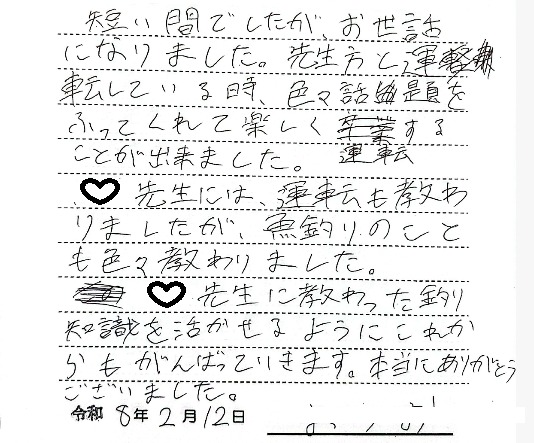 短い間でしたが、お世話
になりました。先生方と運
転している時、色々話題を
ふってくれて楽しく運転する
ことが出来ました。
先生には、運転も教わ
りましたが、魚釣りのこと
も色々教わりました。
先生に教わった釣り
知識を活かせるようにこれか
らもがんばっていきます。本当にありがとう
ございました。
令和8年2月12日